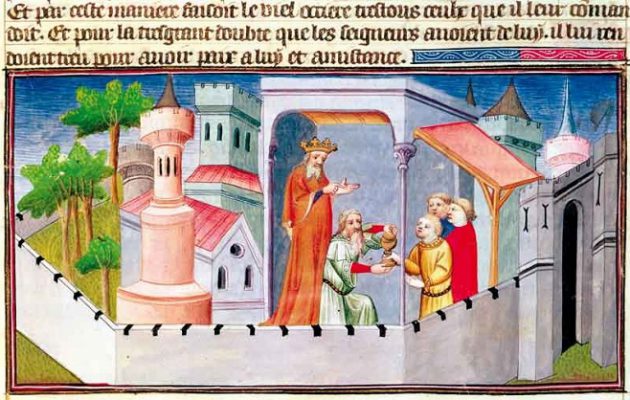 Et par ceste maniere faisoit le viel occire trestous ceulx que il leur coman
doit. Et pour la tresgrant doubte que les seigneurs auoient de luy. il lui ren
doient treu pour auoir paix a luy et amistance.